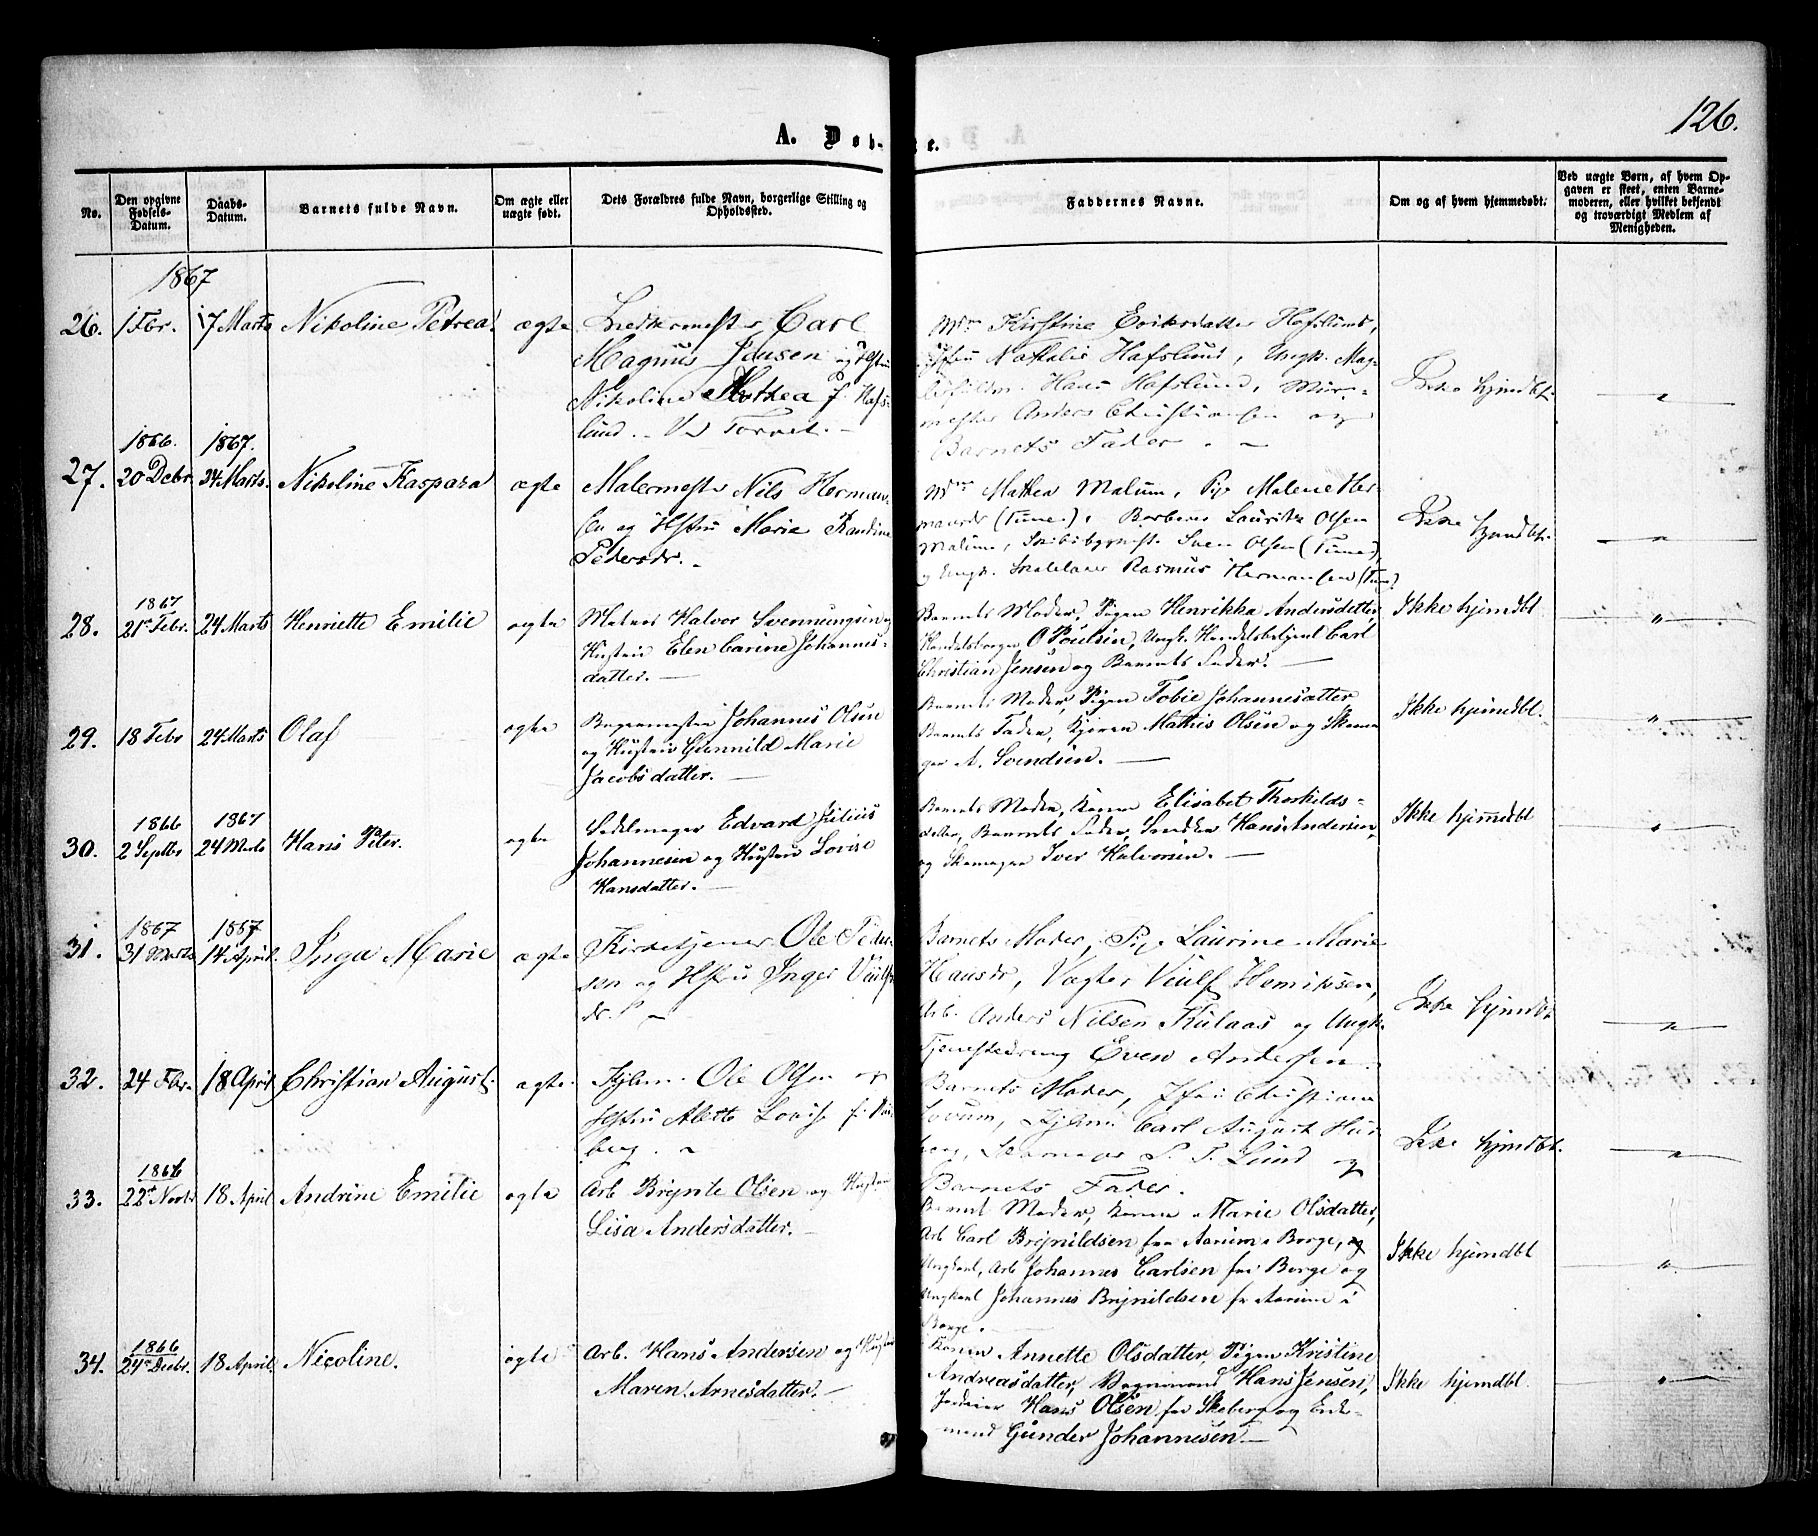 126.
A. Døbte.
No.
Den opgivne Fødsels-Datum.
Daabs-Datum.
Barnets fulde Navn.
Om ægte eller uægte født.
Dets Forældres fulde Navn, borgerlige Stilling og Opholdssted.
Faddernes Navne.
Om og af hvem hjemmedøbt.
Ved uægte Børn, af hvem Opgaven er skeet, enten Barnemoderen, eller hvilket bekjendt og troværdigt Medlem af Menigheden.
1867
26. 1 Fbr. 17 Marts Nikoline Petrea ægte
Carl
Magnus Jensen og Hstru
Nikoline Mathea f. Hafs-
lund. Torvet.
Kirstine Eriksdatter Hafslund,
Nathalie Hafslund, Ungk. Mag-
Hans Hafslund, Mur-
mester Anders Christiansen og
Barnets Fader.
Ikke hjmdbt.
1866. 1867.
27. 20 Debr. 24 Marts. Nikoline Kaspara ægte
Malermester Nils Herman-
sen og Hstru Marie
Pedersdr.
Mathea Malum, Pige Malene Her-
mansdr (Tune), Lauritz Olsen
Malum, Skibsbygmest. Sven Olsen (Tune),
og Ungk. Rasmus Hermansen (Tune)
Ikke hjmdbt.
1867
28. 21de Febr. 24 Marts Henriette Emilie ægte
Halvor Svenningsen og
Hustru Elen Carine Johannes-
datter.
Barnets Moder, Pigen Henrikka Andersdatter,
Handelsborger O Poulsen, Ungk. Handelsbetjent Carl
Christian Jensen og Barnets Fader.
Ikke hjemdbt
29. 18 Febr 24 Marts Olaf ægte
Bagermester Johannes Olsen
og Hustru Gunnild Marie
Jacobsdatter.
Barnets Moder, Pigen Tobie Johannesdatter
Barnets Fader, Mathis Olsen og Skoma-
ger A. Svendsen.
Ikke hjemdbt.
1866 1867
30. 2 Septbr 24 Marts Hans Peter. ægte
Sadelmager Edvard Julius
Johannesen og Hustru Lovise
Hansdatter.
Barnets Moder, Konen Elisabet Thorkilds-
datter, Barnets Fader, Snedker Hans Andersen,
og Skomager Iver Halvorsen.
Ikke hjemmedbt
1867 1867
31. 31 Marts 14 April. Inga Marie ægte
Kirketjener Ole Peder-
sen og Hstru Inger Viulfs
dr.
Barnets Moder, Pige Laurine Marie
Hansdr, Vægter Viulf Henriksen,
Arb. Anders Nilsen Kulaas og Ungk.
Tjenestedreng Even Andersen
Ikke hjmdbt
32. 24 Fbr. 18 April Christian August. ægte
Ole Olsen og
Hstru Alette Lovise f.
berg.
Barnets Moder, Christiane
Carl August
Skomager Lund og
Barnets Fader.
Ikke hjmdbt.
1866
33. 22de Novbr 18 April Andrine Emilie ægte
Arb. Brynte Olsen og Hustru
Lisa Andersdatter.
Barnets Moder, Konen Marie Olsdatter,
Arb Carl Brynildsen fra Aarum i Borge, og
Ungkarl, Arb Johannes Carlsen fra Borge og
Ungkarl Johannes Brynildsen fr Aarum i
Borge.
Ikke hjemdbt
1866
34. 24de Decbr. 18 April. Nicoline. ægte
Arb. Hans Andersen og Hustru
Maren Arnesdatter.
Konen Annette Olsdatter, Pigen Kristine
Andreasdatter, Hans Jensen,
Hans Olsen fra Skeberg og
mand Gunder Johannesen
Ikke hjemdbt.